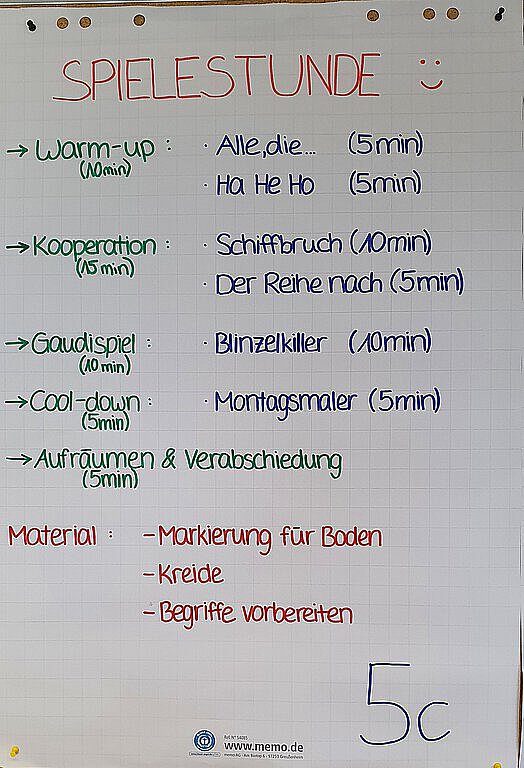 SPIELESTUNDE
→ Warm-up : · Alle, die... (5min)
(10min)
· Ha He Ho (5min)
→ Kooperation : · Schiffbruch (10min)
(15 min)
· Der Reihe nach (5min)
→ Gaudispiel : · Blinzelkiller (10min)
(10 min)
→ Cool-down : · Montagsmaler (5min)
(5min)
→ Aufräumen & Verabschiedung
(5min)
Material : - Markierung für Boden
- Kreide
- Begriffe vorbereiten
5c
www.memo.de